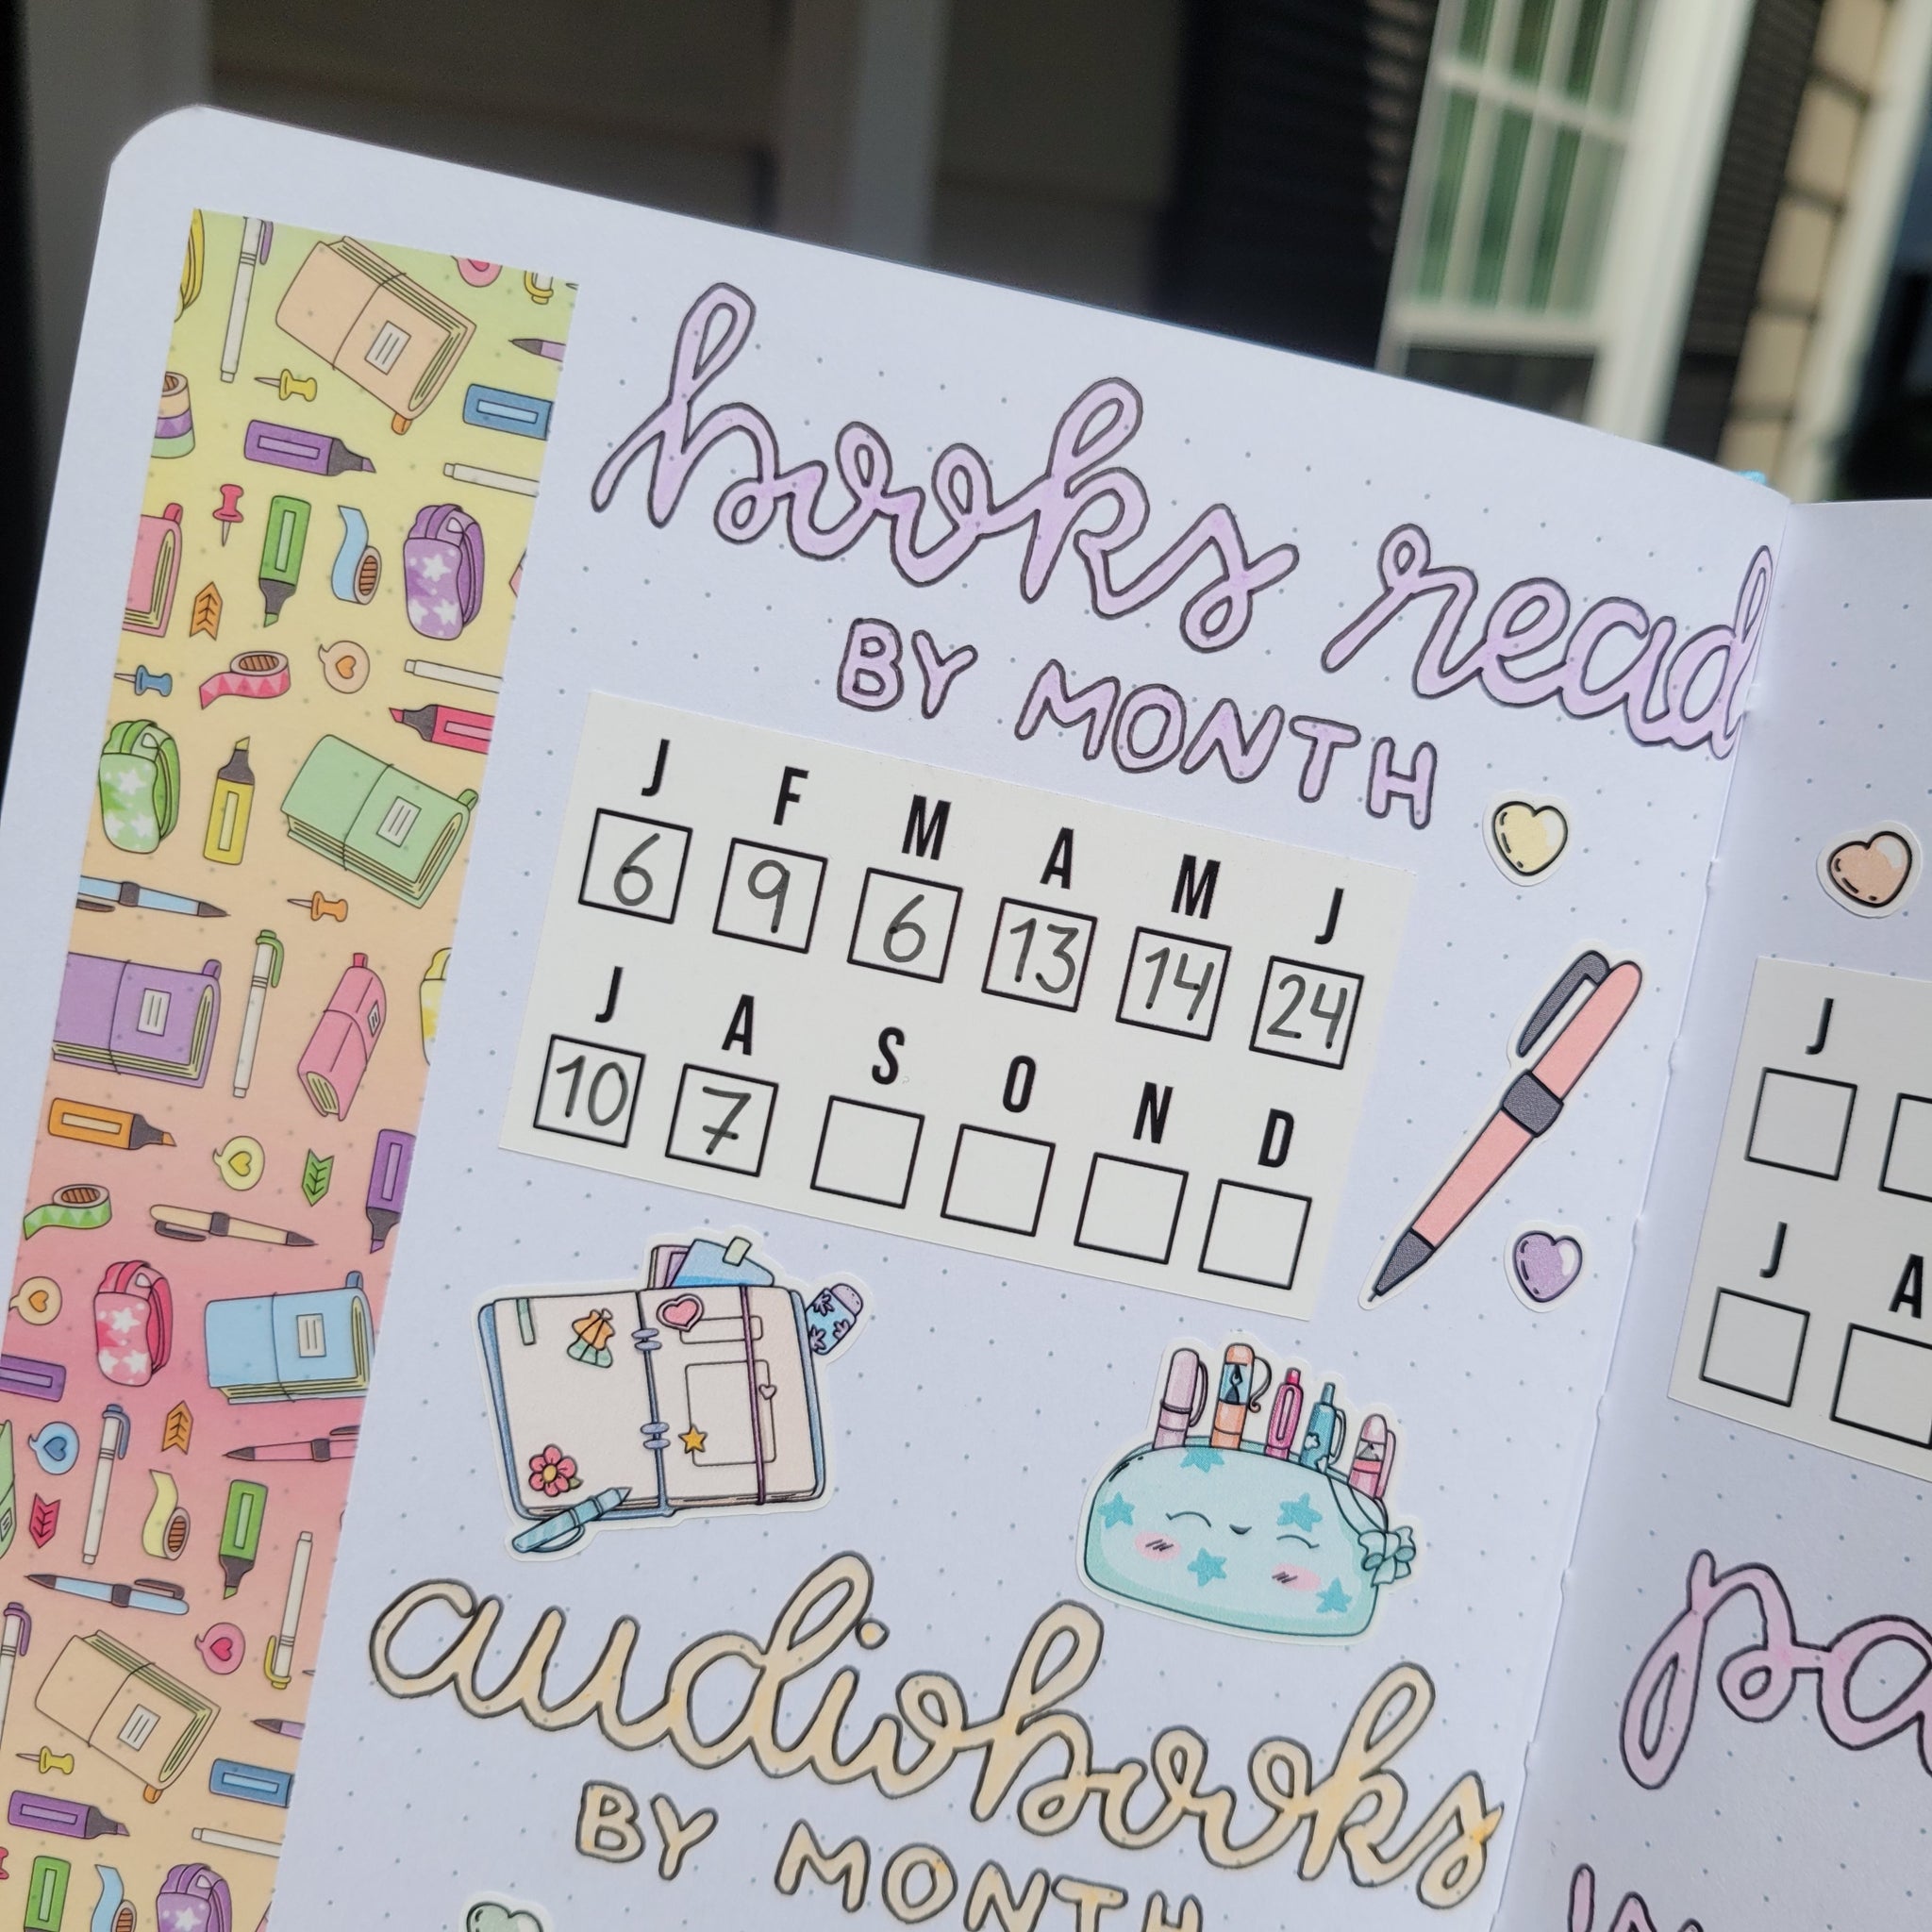 books read
BY MONTH
J F M A M J
6 9 6 13 14 24
J A S O N D
10 7
audiobooks
BY MONTH
J
J A